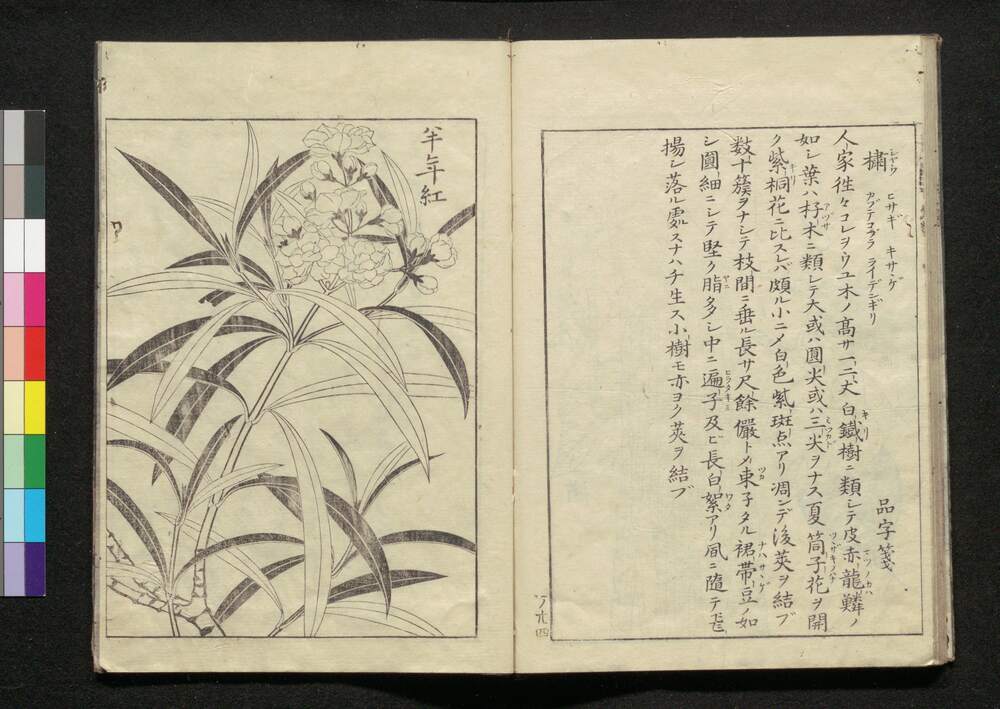 橚 ヒサギ キサヽゲ
シヤウ
カブテコブラ ライデンギリ
品字箋
人家徃々コレヲウユ木ノ高サ一二丈白鐵樹ニ類シテ皮赤龍鱗ノ
如シ葉ハ杍木ニ類シテ大或ハ圓尖或ハ三尖ヲナス夏筒子花ヲ開
ク紫桐花ニ比スレバ頗ル小ニ〆白色紫斑点アリ凋ンデ後莢ヲ結ブ
数十簇ヲナシテ枝間ニ垂ル長サ尺餘儼トメ束子タル裙帯豆ノ如
シ圓細ニシテ堅ク脂多シ中ニ遍子及ビ長白絮アリ風ニ随テ飛
揚シ落ル處スナハチ生ス小樹モ亦ヨク莢ヲ結ブ
半年紅